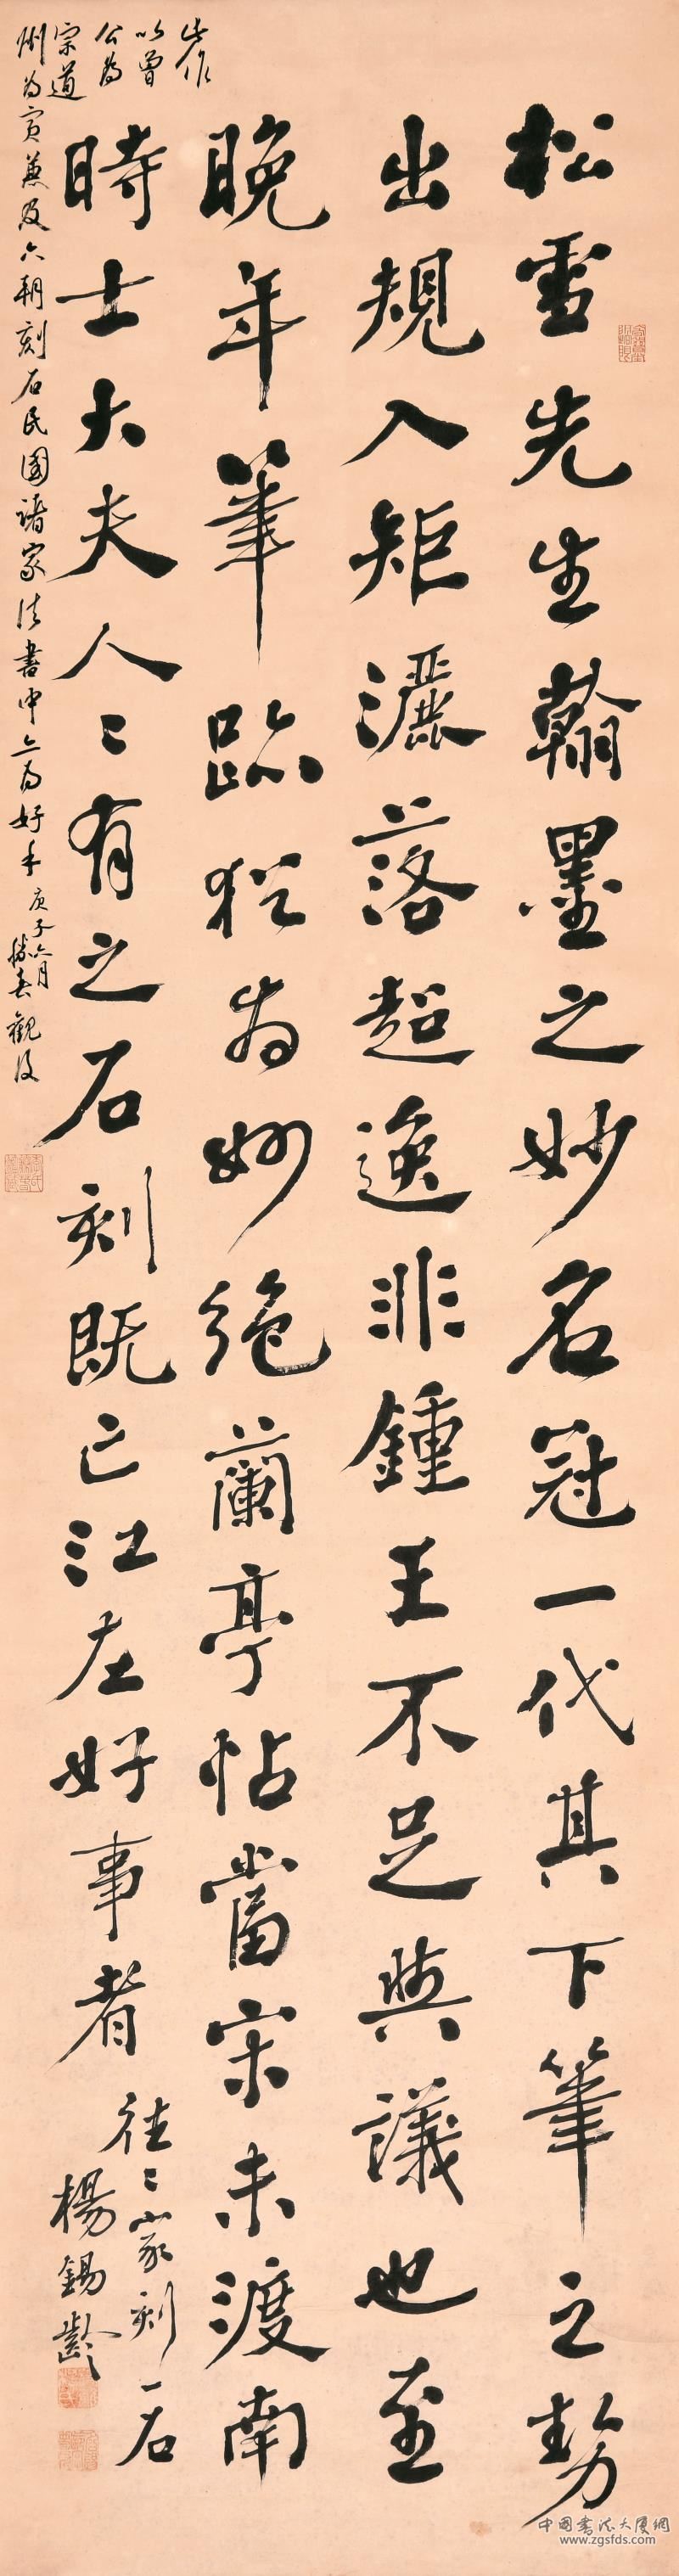 松雪先生翰墨之妙名冠一代其下筆之勢
出規入矩灑落超逸非鍾王不足與議也至
晚年筆跡猶為妙絕蘭亭帖當宋未渡南
時士大夫人〻有之石刻既亡江左好事者
往〻家刻一石
楊錫齡
此作
以曾
公為
宗道
州為賓兼及六朝刻石民國諸家法書中亦為好手庚子六月
觀後
中國書法大廈網
www.zgsfds.com